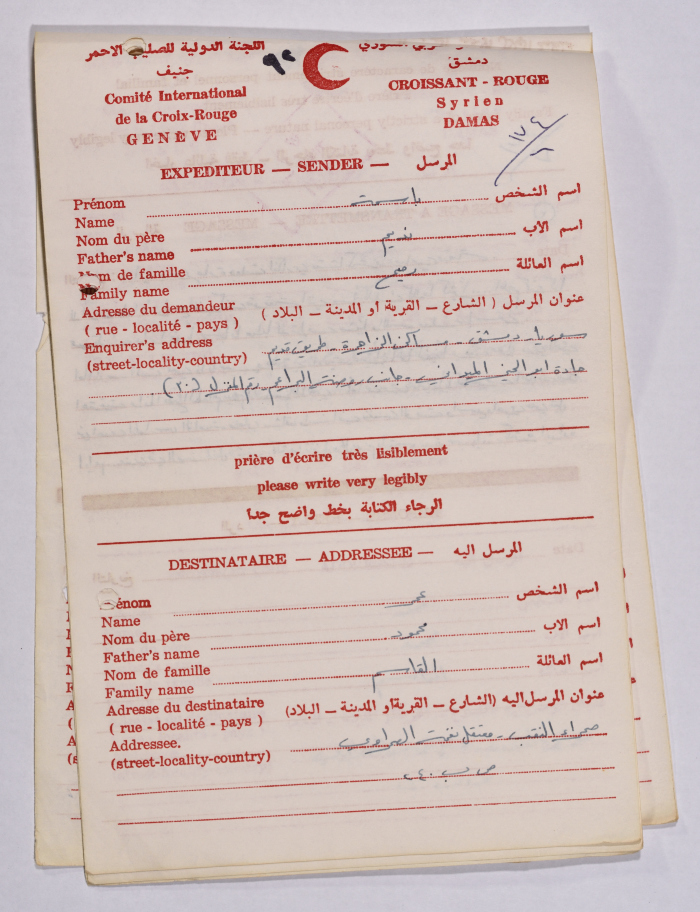 اللجنة الدولية للصليب الاحمر
جنيف
Comité International
de la Croix-Rouge
GENÈVE
٩٢
السوري
دمشق
CROISSANT - ROUGE
Syrien
DAMAS
EXPEDITEUR — SENDER — المرسل
Prénom
Name
باسمة
اسم الشخص
Nom du père
Father's name
نديم
اسم الأب
Nom de famille
Family name
اسم العائلة
Adresse du demandeur
( rue - localité - pays )
عنوان المرسل ( الشارع ــ القرية او المدينة ــ البلاد )
Enquirer's address
(street-locality-country)
سوريا - دمشق - مساكن الزاهرة - طريق قديم
جادة ابو الحسن الميداني - جانب روضة البراعم رقم المنزل (٢٠)
prière d'écrire très lisiblement
please write very legibly
الرجاء الكتابة بخط واضح جدا
DESTINATAIRE — ADDRESSEE — المرسل اليه
énom
Name
عمر
اسم الشخص
Nom du père
Father's name
محمود
اسم الاب
Nom de famille
Family name
القاسم
اسم العائلة
Adresse du destinataire
( rue - localité - pays )
عنوان المرسل اليه (الشارع ــ القرية او المدينة ــ البلاد)
Addressee.
(street-locality-country)
صحراء النقب - معتقل
ص ب ٤٠